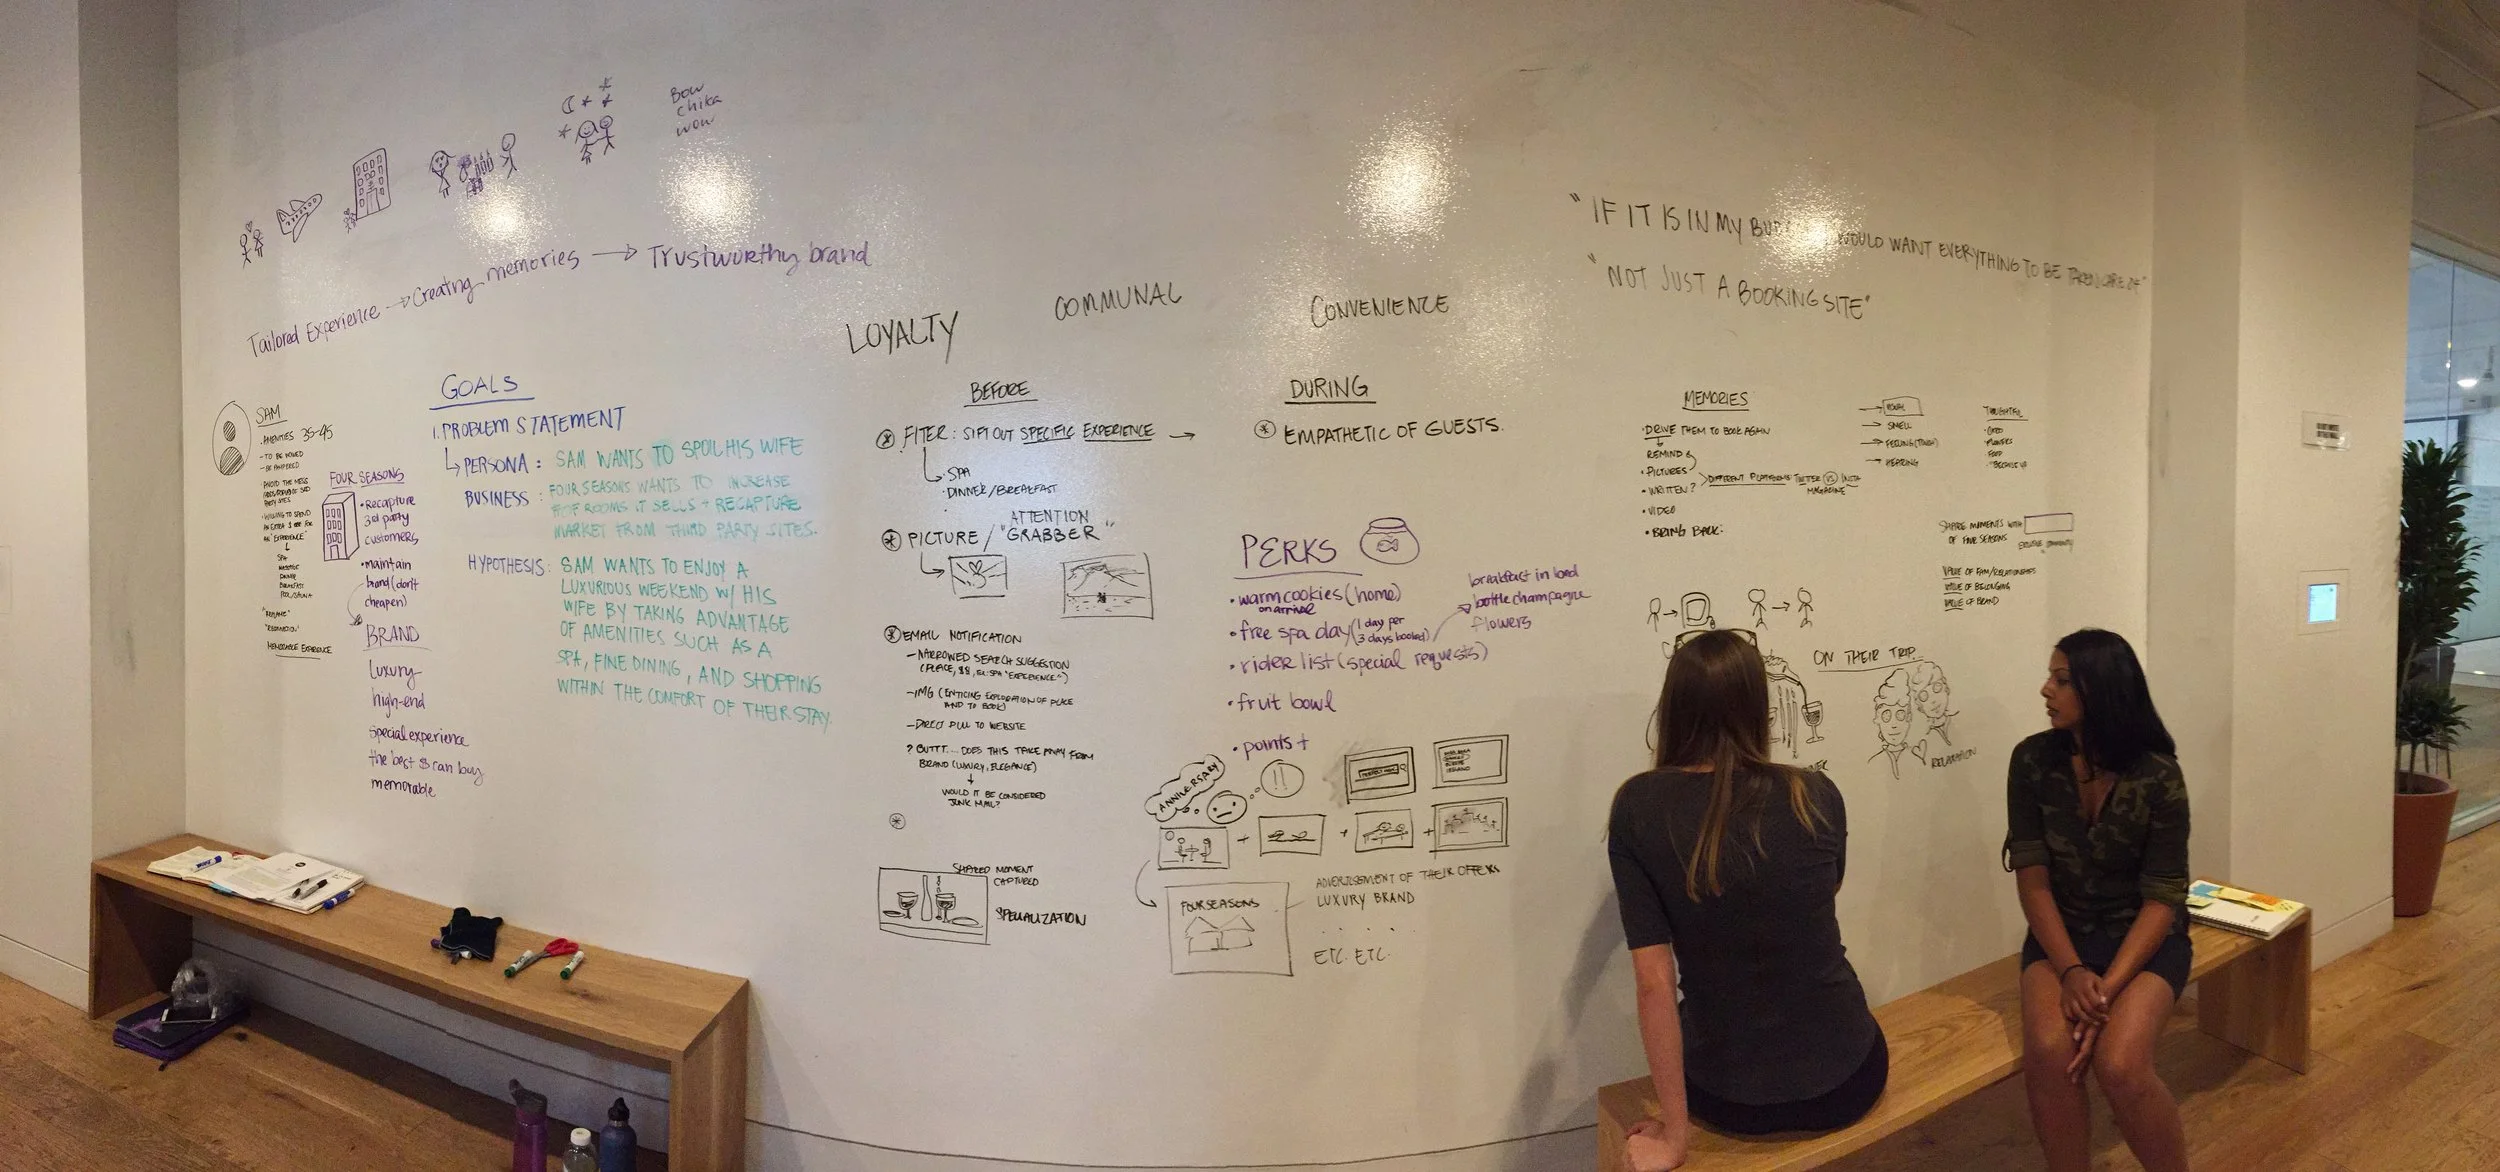 Bow
chika
wow
Tailored Experience → Creating memories → Trustworthy brand
LOYALTY
COMMUNAL
CONVENIENCE
"IF IT IS IN MY WOULD WANT EVERYTHING TO BE TAKEN CARE OF"
"NOT JUST A BOOKING SITE"
SAM
· AMENITIES 35-45
- TO BE WOWED
- BE PAMPERED
· AVOID THE MESS
PARTY SITES
· WILLING TO SPEND
AN EXTRA $ FOR
AN "EXPERIENCE"
SPA
MASSAGE
DINNER
BREAKFAST
POOL/SAUNA
MEMORABLE EXPERIENCE
FOUR SEASONS
· Recapture
3rd party
customers
· maintain
brand (don't
cheapen)
BRAND
Luxury
high-end
special experience
the best $ can buy
memorable
GOALS
1. PROBLEM STATEMENT
↳ PERSONA: SAM WANTS TO SPOIL HIS WIFE
BUSINESS: FOUR SEASONS WANTS TO INCREASE
# OF ROOMS IT SELLS + RECAPTURE
MARKET FROM THIRD PARTY SITES.
HYPOTHESIS: SAM WANTS TO ENJOY A
LUXURIOUS WEEKEND W/ HIS
WIFE BY TAKING ADVANTAGE
OF AMENITIES SUCH AS A
SPA, FINE DINING, AND SHOPPING
WITHIN THE COMFORT OF THEIR STAY.
BEFORE
FITER: SIFT OUT SPECIFIC EXPERIENCE →
· SPA
· DINNER/BREAKFAST
PICTURE / "ATTENTION
GRABBER"
EMAIL NOTIFICATION
- NARROWED SEARCH SUGGESTION
(PLACE, $$, EX: SPA "EXPERIENCE")
- IMG (ENTICING EXPLORATION OF PLACE
AND TO BOOK)
- DIRECT PULL TO WEBSITE
? BUTTT.... DOES THIS TAKE AWAY FROM
BRAND (LUXURY, ELEGANCE)
WOULD IT BE CONSIDERED
JUNK MAIL?
SHARED MOMENT
CAPTURED
DURING
EMPATHETIC OF GUESTS.
PERKS
· warm cookies (home)
on arrival
· free spa day (1 day per
3 days booked)
· rider list (special requests)
· fruit bowl
· points +
breakfast in bed
bottle champagne
flowers
ANNIVERSARY
!!
FOUR SEASONS
ADVERTISEMENT OF THEIR OFFERS
LUXURY BRAND
ETC. ETC.
MEMORIES
· DRIVE THEM TO BOOK AGAIN
REMIND
· PICTURES
· WRITTEN?
DIFFERENT PLATFORMS: TWITTER VS INSTA
MAGAZINE
· VIDEO
· BRING BACK:
→ VISUAL
→ SMELL
→ FEELING (TOUCH)
→ HEARING
THOUGHTFUL
· CARD
· FLOWERS
· FOOD
SHARE MOMENTS WITH
OF FOUR SEASONS
EXCLUSIVE COMMUNITY
VALUE OF FAM/RELATIONSHIPS
VALUE OF BELONGING
VALUE OF BRAND
ON THEIR TRIP.
RELAXATION